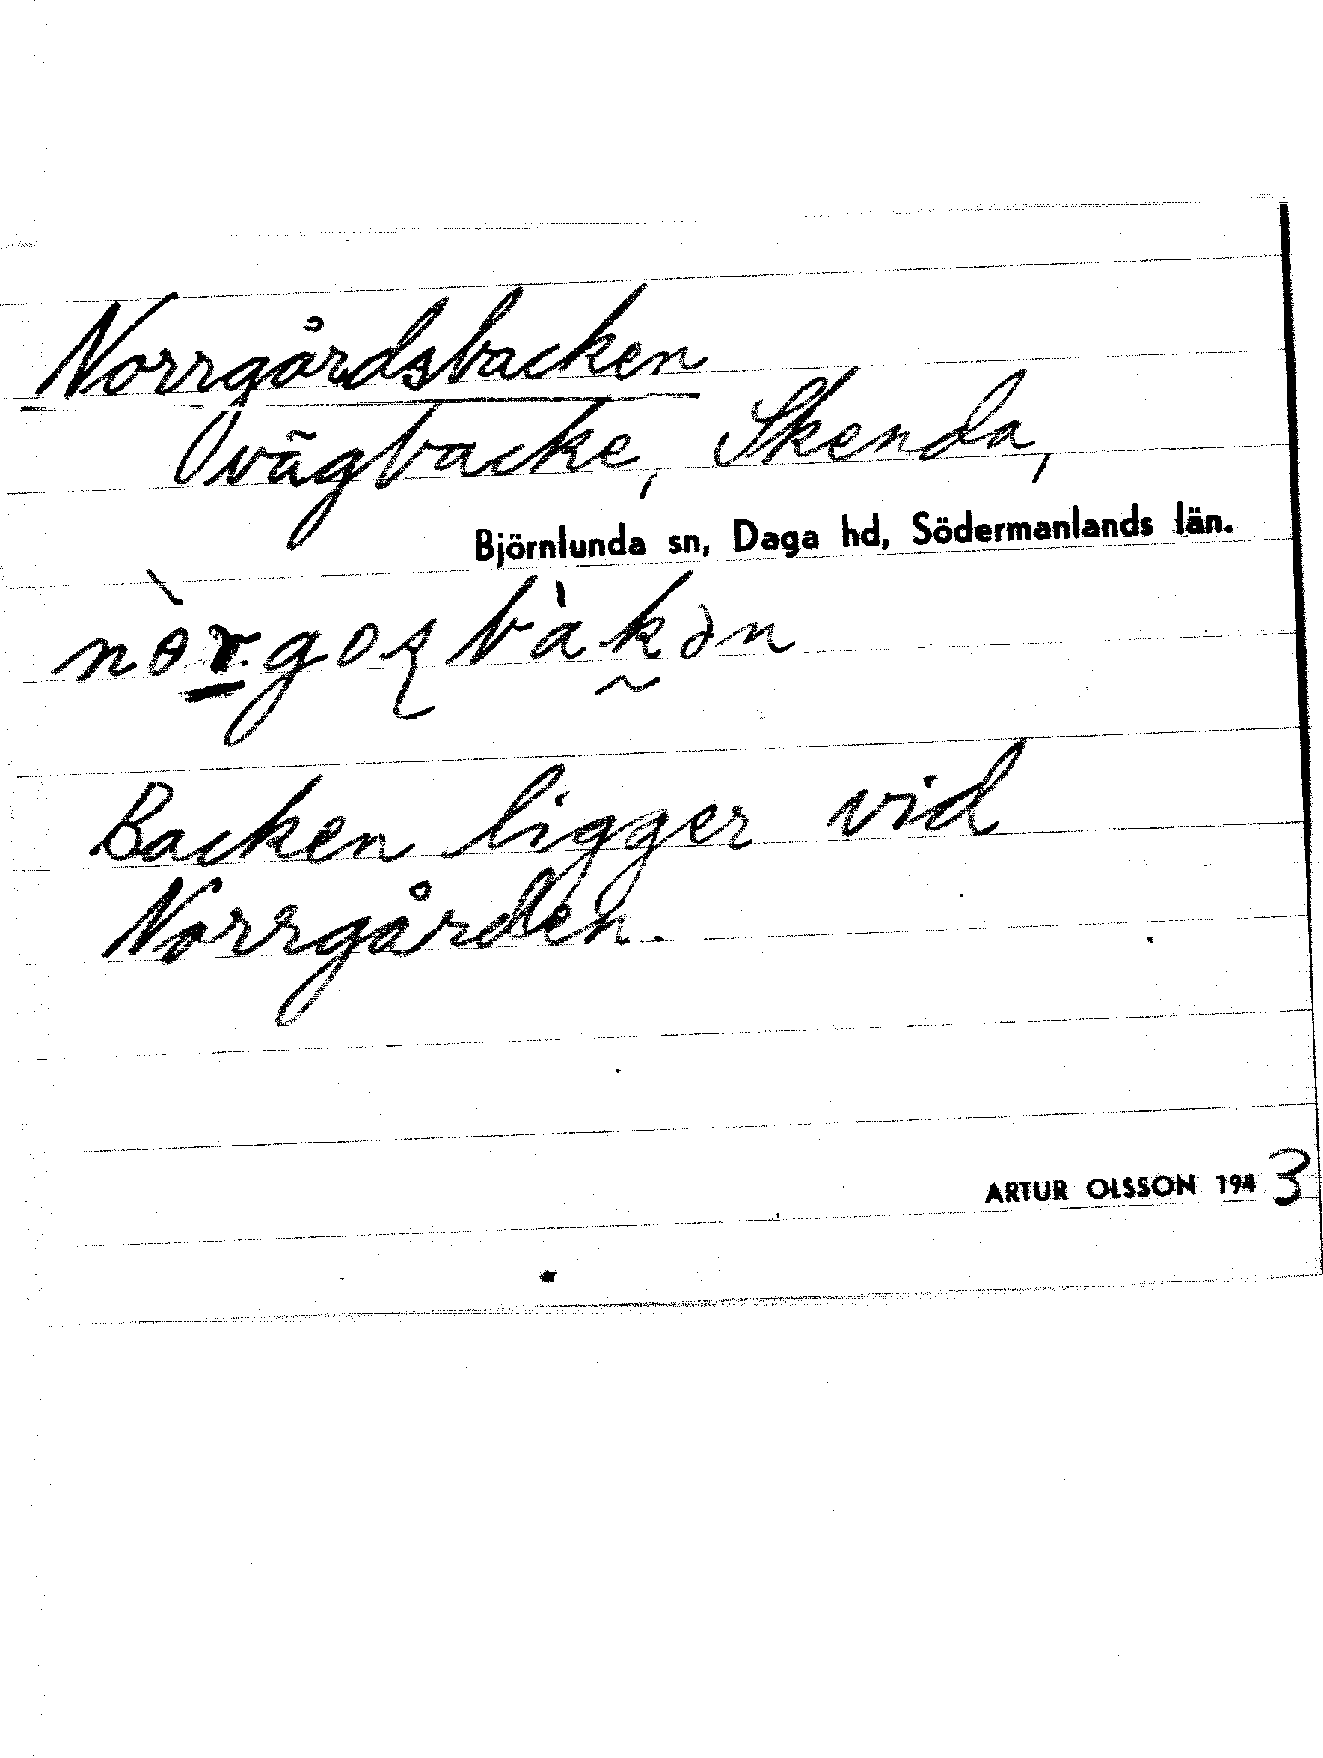 Norrgårdsbacken
vägbacke, Skenda,
Björnlunda sn, Daga hd, Södermanlands län.
nòr̲goʂbàkən
Backen ligger vid
Norrgården.
ARTUR OLSSON 1943